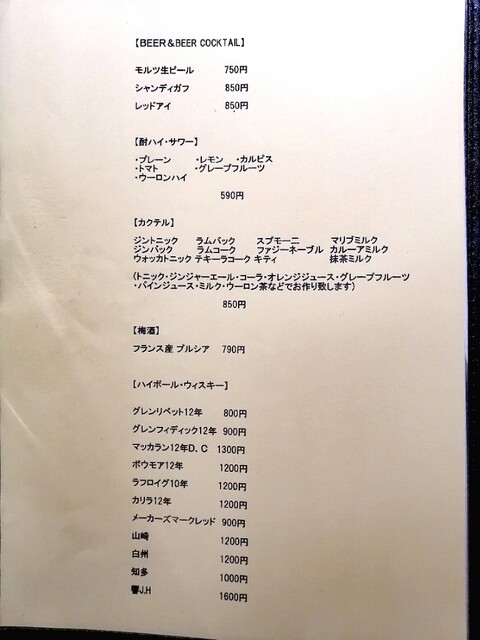 【BEER＆BEER COCKTAIL】
モルツ生ビール 750円
シャンディガフ 850円
レッドアイ 850円
【酎ハイ・サワー】
・プレーン ・レモン ・カルピス
・トマト ・グレープフルーツ
・ウーロンハイ
590円
【カクテル】
ジントニック ラムバック スプモーニ マリブミルク
ジンバック ラムコーク ファジーネーブル カルーアミルク
ウォッカトニック テキーラコーク キティ 抹茶ミルク
（トニック・ジンジャーエール・コーラ・オレンジジュース・グレープフルーツ
・パインジュース・ミルク・ウーロン茶などでお作り致します）
850円
【梅酒】
フランス産 プルシア 790円
【ハイボール・ウィスキー】
グレンリベット12年 800円
グレンフィディック12年 900円
マッカラン12年D、C 1300円
ボウモア12年 1200円
ラフロイグ10年 1200円
カリラ12年 1200円
メーカーズマークレッド 900円
山崎 1200円
白州 1200円
知多 1000円
響J.H 1600円